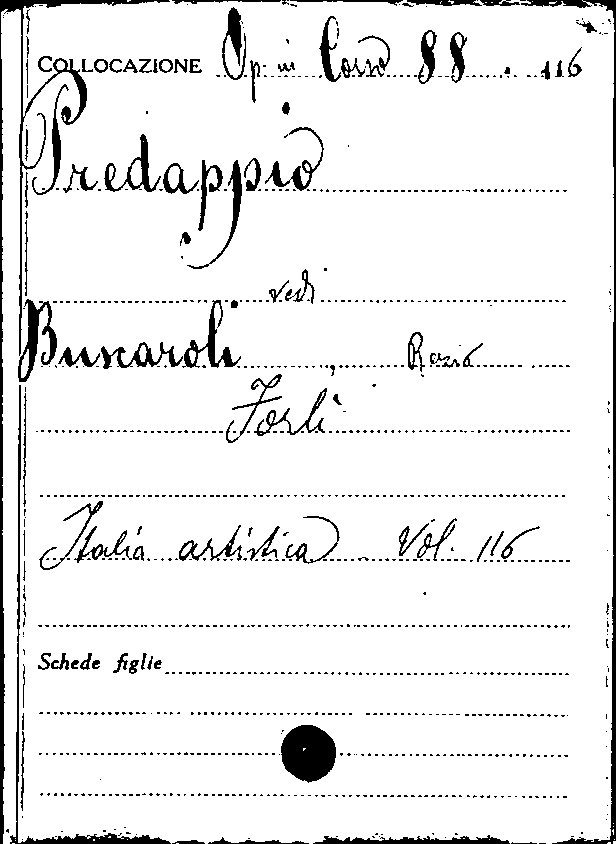 COLLOCAZIONE Op. in Corso 88 . 116
Predappio
vedi
Buscaroli, Rezio
Forlì
Italia artistica. Vol. 116
Schede figlie